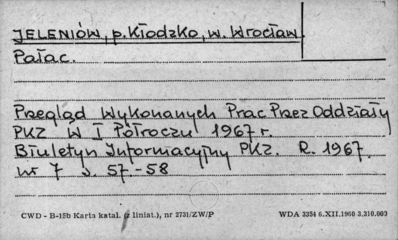 JELENIÓW, p. Kłodzko, w. Wrocław
Pałac.
Przegląd Wykonanych Prac Przez Oddziały
PKZ W I Półroczu 1967 r.
Biuletyn Informacyjny PKZ. R. 1967.
nr 7 s. 57.-58
CWD - B-15b Karta katal. (z liniat.), nr 2731/ZW/P WDA 3354 6.XII.1960 3.210.000